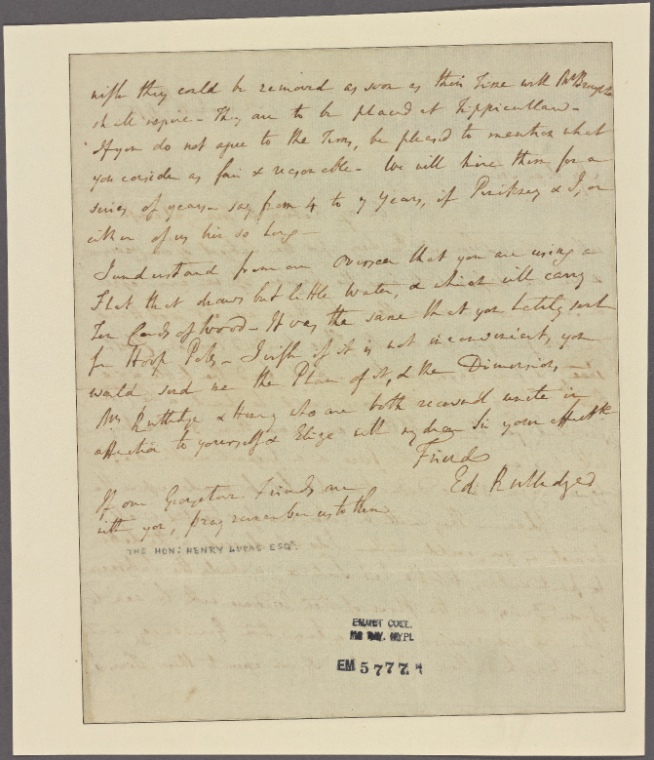 wish they could be removed as soon as their Time with Mr
shall expire - They are to be placed at Tippicutlaw -
If you do not agree to the Terms, be pleased to mention what
you consider as fair & reasonable - We will hire them for a
series of years - say from 4 to 7 years, if Pinckney & I, or
either of us live so long -
I understand from our Overseer that you are using a
Flat that draws but little Water, & which will carry
Ten Cords of Wood - It was the same that you lately sent
for Hoop Poles - I wish if it is not inconvenient, you
would send me the Plan of it, & the Dimensions, -
Mrs Rutledge & Henry who are both recovered unite in
affection to yourself & Eliza with my dear Sir your affecte
Friend
Ed Rutledge
If our Georgetown Friends are
with you, pray remember us to them
THE HON: HENRY ESQR.
EMMET COLL.
MS DIV. NYPL
EM 5777